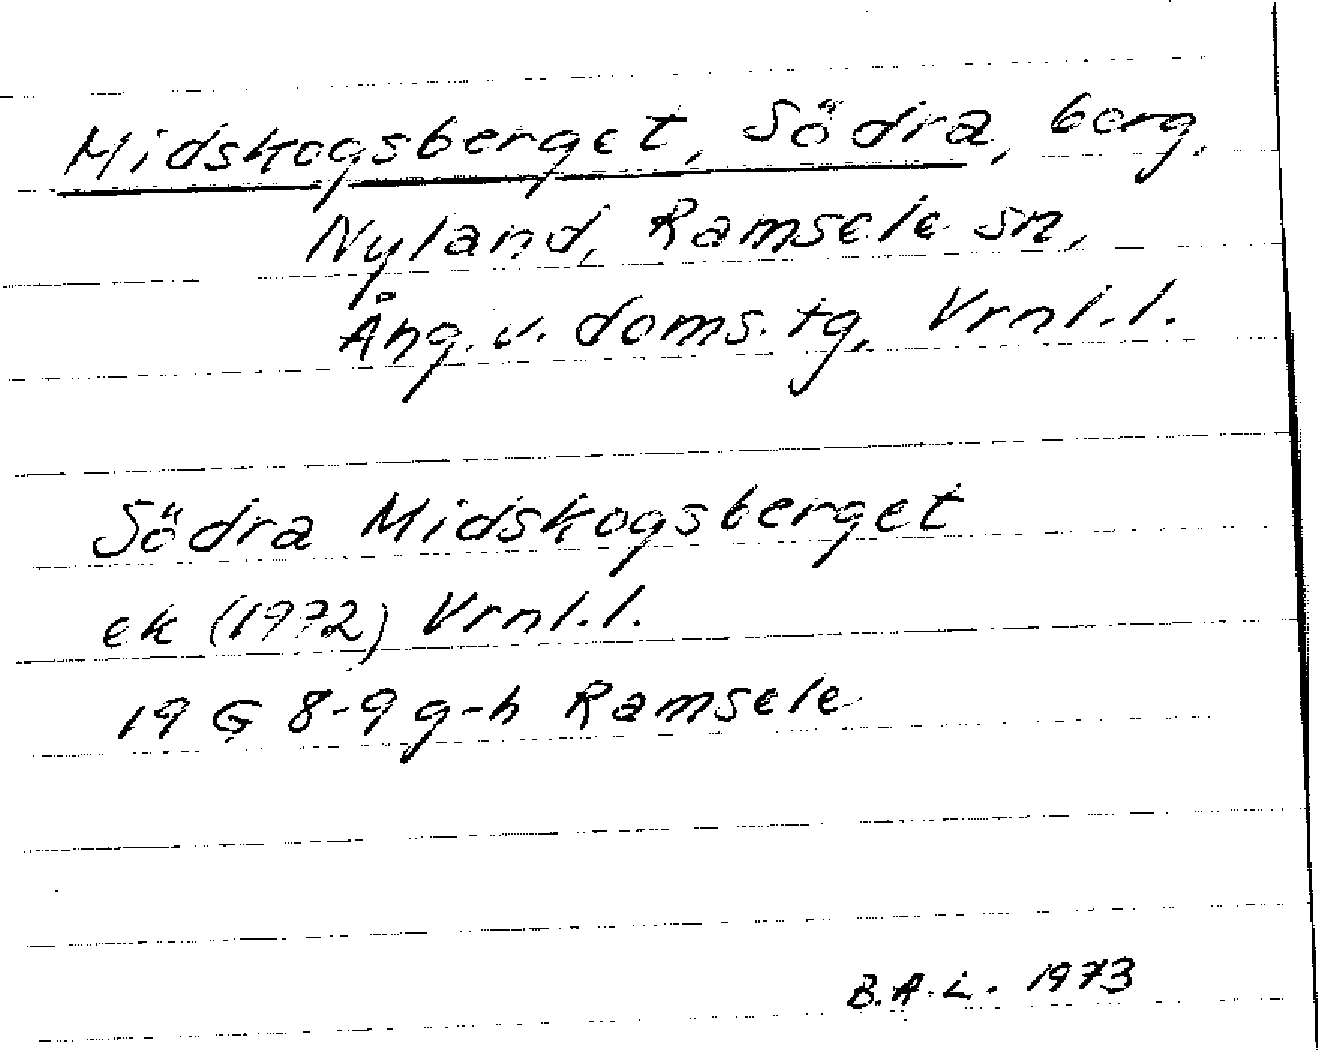 Midskogsberget, Södra, berg,
Nyland, Ramsele sn,
Ång. v. doms. tg, Vrnl.l.
Södra Midskogsberget
ek (1972) Vrnl.l.
19 G 8-9 g-h Ramsele
B.A.L. 1973